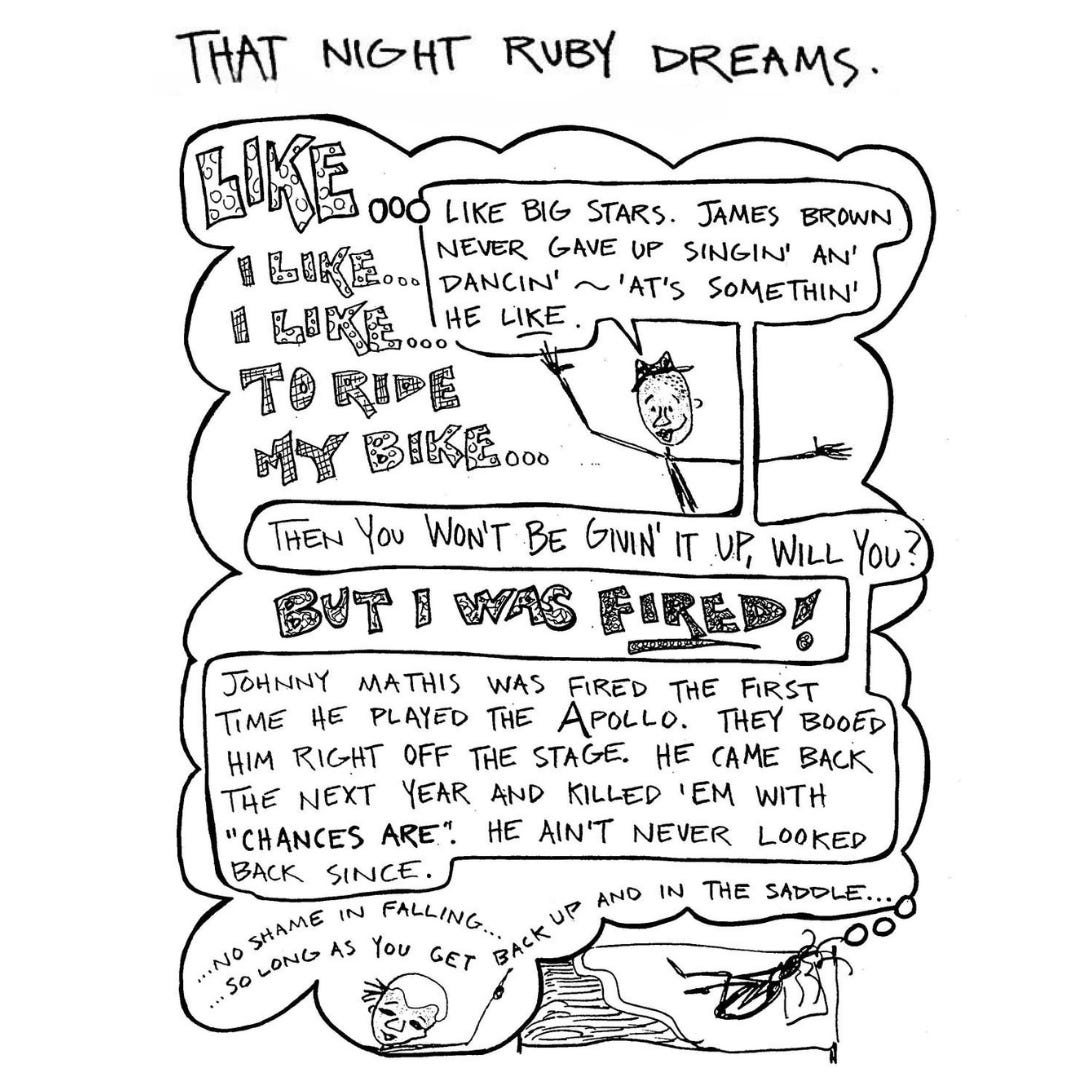 THAT NIGHT RUBY DREAMS.
LIKE...
I LIKE...
I LIKE...
TO RIDE
MY BIKE...
LIKE BIG STARS. JAMES BROWN
NEVER GAVE UP SINGIN' AN'
DANCIN' ~ 'AT'S SOMETHIN'
HE LIKE.
THEN YOU WON'T BE GIVIN' IT UP, WILL YOU?
BUT I WAS FIRED!
JOHNNY MATHIS WAS FIRED THE FIRST
TIME HE PLAYED THE APOLLO. THEY BOOED
HIM RIGHT OFF THE STAGE. HE CAME BACK
THE NEXT YEAR AND KILLED 'EM WITH
"CHANCES ARE". HE AIN'T NEVER LOOKED
BACK SINCE.
...NO SHAME IN FALLING...
...SO LONG AS YOU GET BACK UP AND IN THE SADDLE...